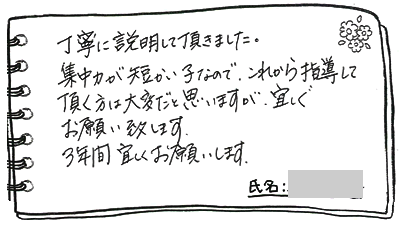 丁寧に説明して頂きました。
集中力が短かい子なので、これから指導して
頂く方は大変だと思いますが、宜しく
お願い致します。
3年間宜しくお願いします。
氏名: